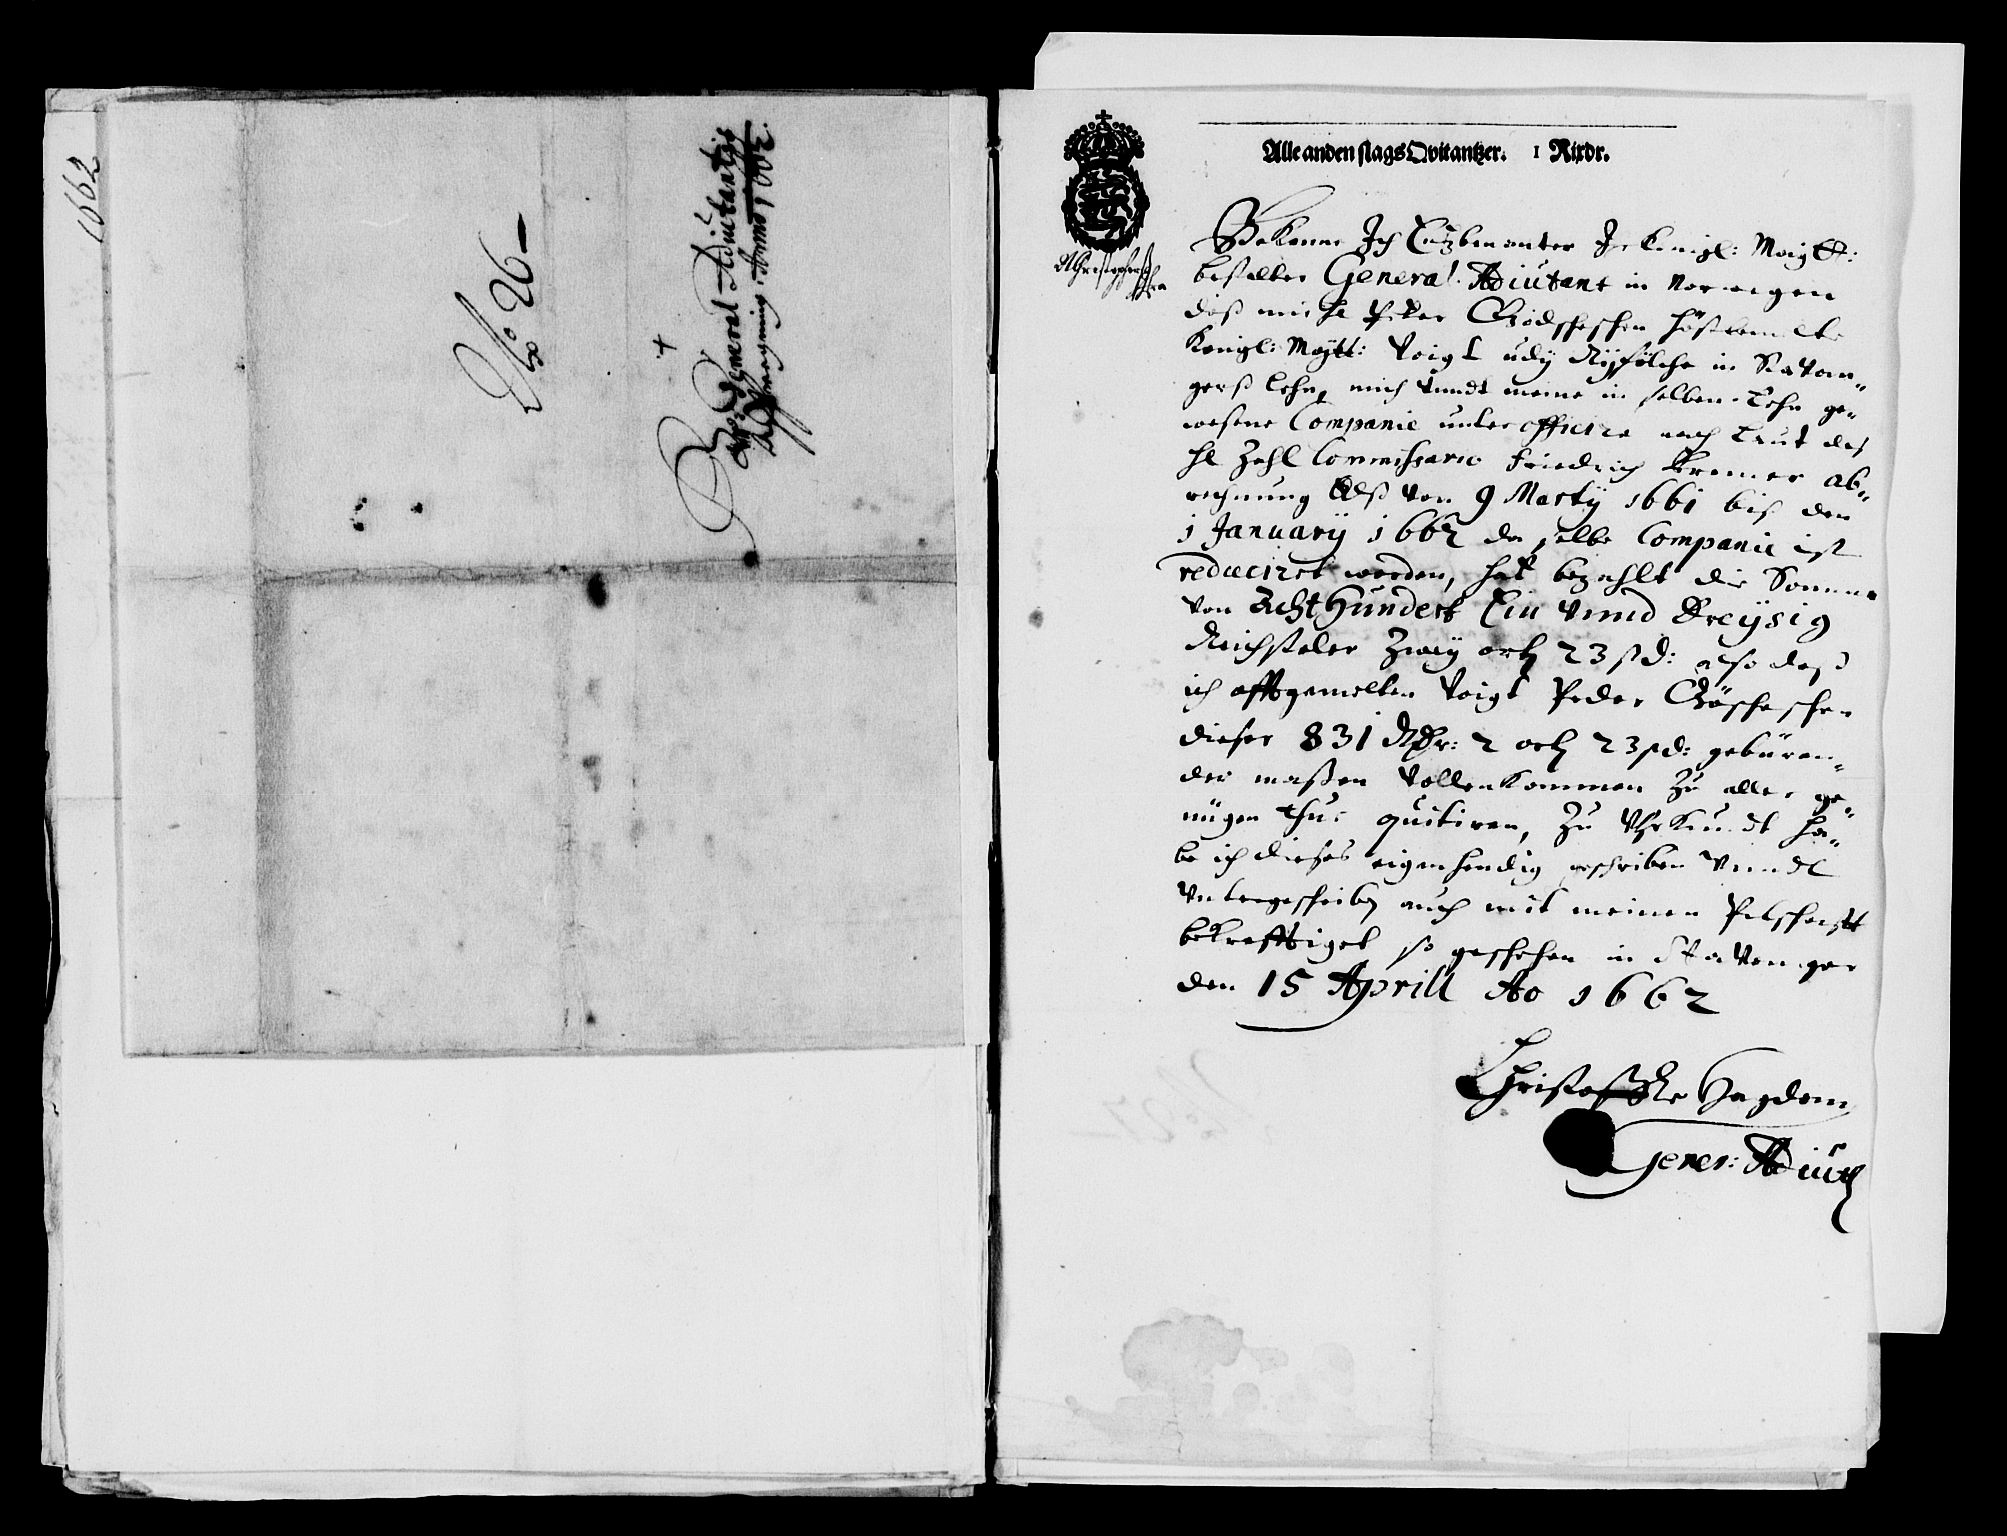 1662
No 26
General Adiutantzis
Afregning. Anno 1662.
Alle anden slags Qvitantzer. 1 Rixdr.
Bekenne Ich Endtzbenanter Jr Königl: Mayᵗᵗ:
bestalter General Adiutant in Norwegen
daß mihr Peter
Königl: Maÿtt: Voigt udÿ Rÿfölche in Stavan-
gerß Lehn, mich unndt meine in selben Lehn ge-
wesene Companie unter officire nach laut des
H Zahl Commissario Friedrich Kremer ab-
rechnung Alß von 9 Martÿ 1661 biß den
1 Januarÿ 1662 da selbe Companie ist
reducirct worden, hat bezahlt die Summa
von Acht Hundert Ein unnd Dreÿsig
Reichstaler Zweÿ ort 23 ß d: also daß
ich offtgemelten Voigt Peder
dieser 831 Rdr: 2 ort 23 ß d: gebüren-
der maßen vollenkommen Zu aller ge-
nügen thue quitiren, Zu Uhrkundt ha-
be ich dieses eigenhendig geschriben unndt
untergeschriben auch mit meinen Petschafft
bekrefftiget so geschehen in Stavanger
den 15 Aprill Ao 1662
Gener: Adiut